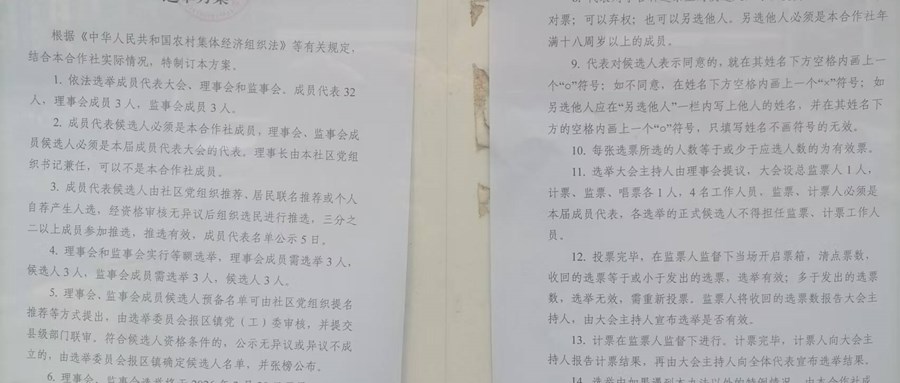 选举方案
根据《中华人民共和国农村集体经济组织法》等有关规定,
结合本合作社实际情况，特制订本方案。
1. 依法选举成员代表大会、理事会和监事会。成员代表 32
人，理事会成员 3 人，监事会成员 3 人。
2. 成员代表候选人必须是本合作社成员，理事会、监事会成
员候选人必须是本届成员代表大会的代表。理事长由本社区党组
织书记兼任，可以不是本合作社成员。
3. 成员代表候选人由社区党组织推荐、居民联名推荐或个人
自荐产生人选，经资格审核无异议后组织选民进行推选，三分之
二以上成员参加推选，推选有效，成员代表名单公示 5 日。
4. 理事会和监事会实行等额选举，理事会成员需选举 3 人，
候选人 3 人，监事会成员需选举 3 人，候选人 3 人。
5. 理事会，监事会成员候选人预备名单可由社区党组织提名
推荐等方式提出，由选举委员会报区镇党（工）委审核，并提交
县级部门联审。符合候选人资格条件的，公示无异议或异议不成
立的，由选举委员会报区镇确定候选人名单，并张榜公布。
6. 理事会、监事会选举
对票；可以弃权；也可以另选他人，另选他人必须是本合作社年
满十八周岁以上的成员。
9. 代表对候选人表示同意的，就在其姓名下方空格内画上一
个“○”符号；如不同意，在姓名下方空格内画上一个“×”符号；如
另选他人应在“另选他人”一栏内写上他人的姓名，并在其姓名下
方的空格内画上一个“○”符号，只填写姓名不画符号的无效。
10. 每张选票所选的人数等于或少于应选人数的为有效票。
11. 选举大会主持人由理事会提议，大会设总监票人 1 人，
计票、监票、唱票各 1 人，4 名工作人员，监票、计票人必须是
本届成员代表，各选举的正式候选人不得担任监票、计票工作人
员。
12. 投票完毕，在监票人监督下当场开启票箱，清点票数，
收回的选票等于或小于发出的选票，选举有效；多于发出的选票
数，选举无效，需重新投票。监票人将收回的选票数报告大会主
持人，由大会主持人宣布选举是否有效。
13. 计票在监票人监督下进行。计票完毕，计票人向大会主
持人报告计票结果，再由大会主持人向全体代表宣布选举结果。
14. 选举中如果遇到本办法以外的特例情况，由大会合作社成